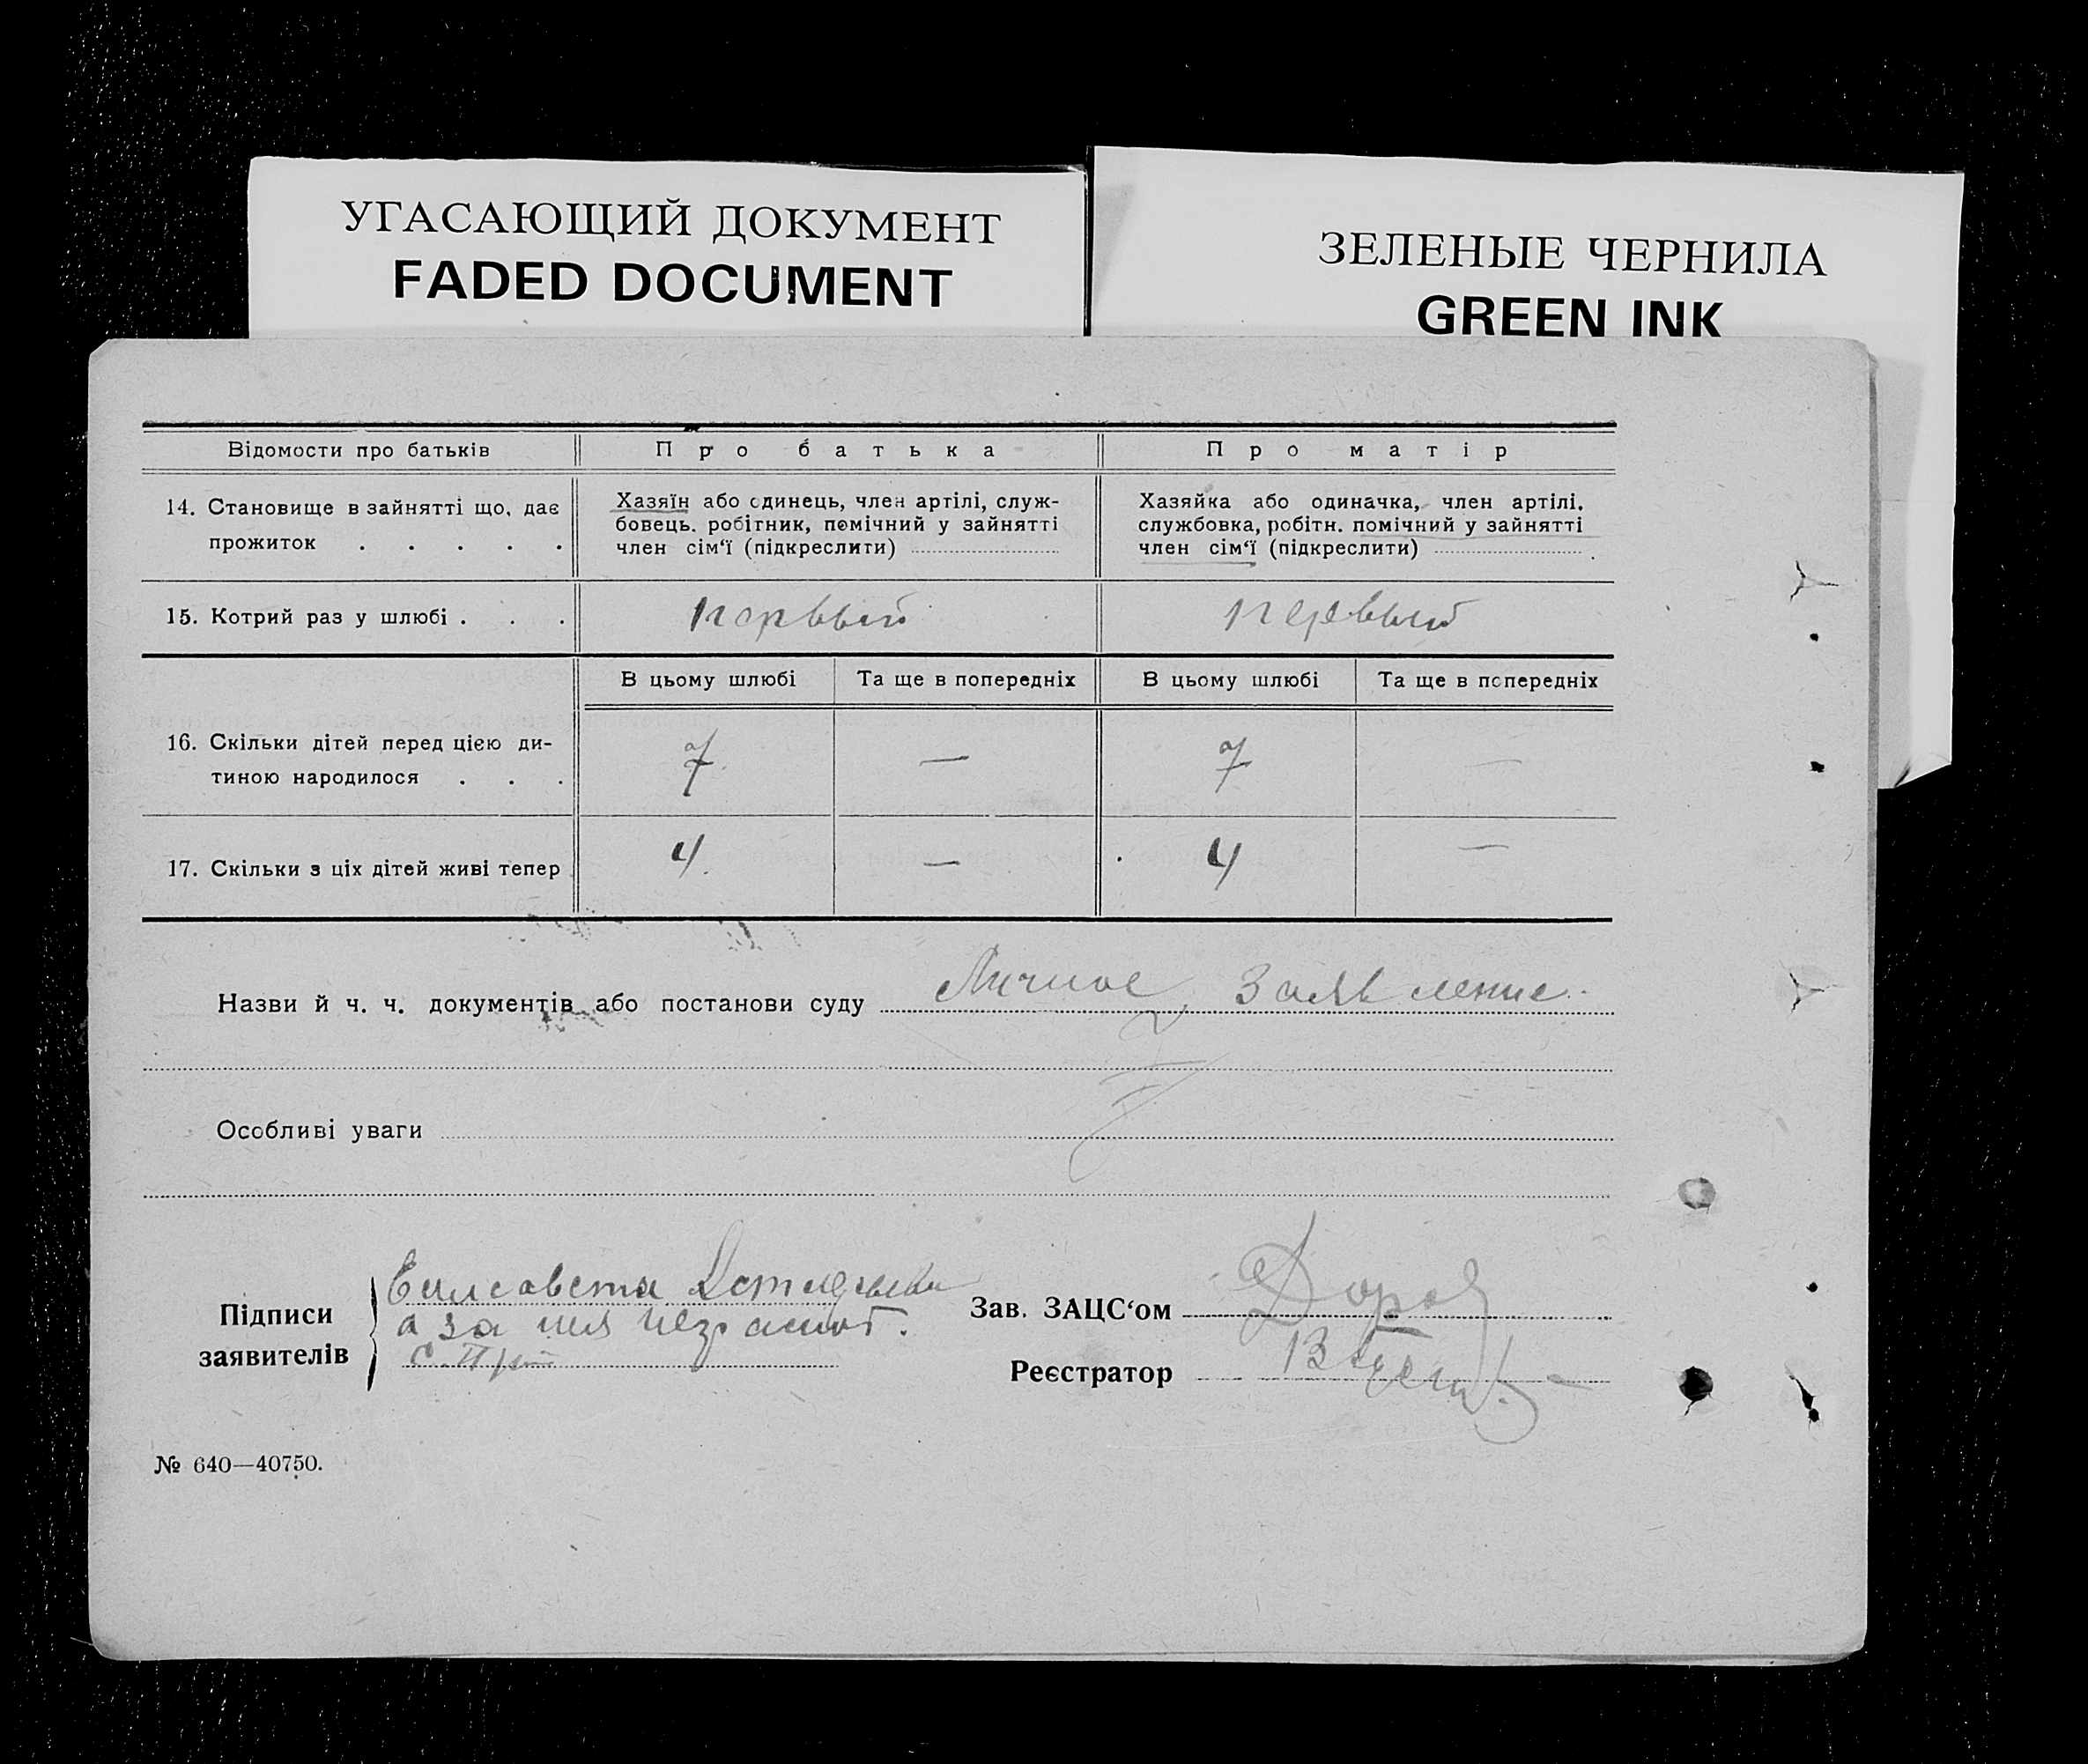 УГАСАЮЩИЙ ДОКУМЕНТ
FADED DOCUMENT
ЗЕЛЕНЫЕ ЧЕРНИЛА
GREEN INK
Відомости про батьків
Про батька
Про матір
14. Становище в зайнятті що, дає
прожиток . . . . .
Хазяїн або одинець, член артілі, служ-
бовець. робітник, помічний у зайнятті
член сім‘ї (підкреслити)
Хазяйка або одиначка, член артілі.
службовка, робітн. помічний у зайнятті
член сім‘ї (підкреслити)
15. Котрий раз у шлюбі . . .
первый
первый
В цьому шлюбі
Та ще в попередніх
В цьому шлюбі
Та ще в попередніх
16. Скільки дітей перед цією ди-
тиною народилося . . .
7
—
7
—
17. Скільки з ціх дітей живі тепер
4
—
4
—
Назви й ч. ч. документів або постанови суду Личное заявление
Особливі уваги
Підписи
заявителів
Елисавета
а за нея неграмот.
Зав. ЗАЦС‘ом
Реєстратор
№ 640—40750.